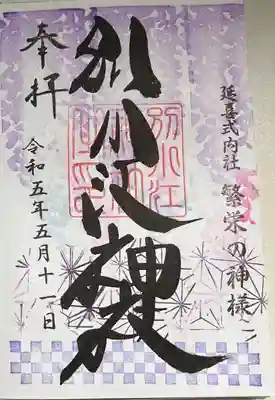 延喜式内社
繁栄の神様
別小江神社
別小江
奉拝
令和五年五月十一日